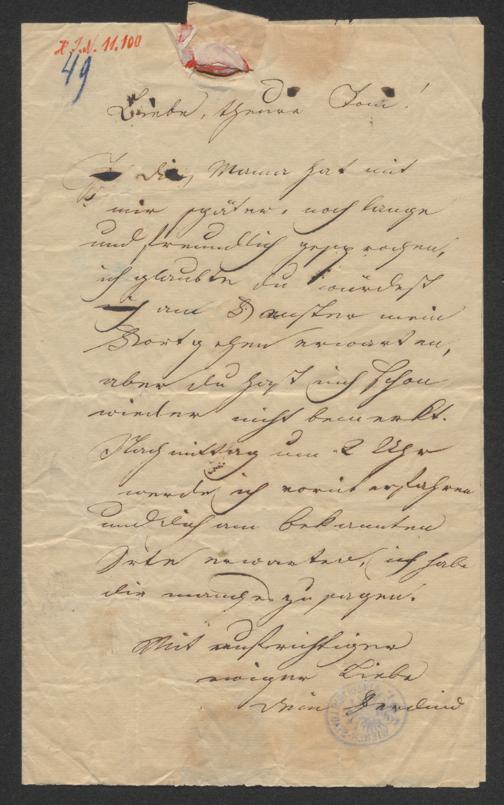 H.I.N. 11.100
49
Liebe, theure Toni!
die Mama hat mit
mir später, noch lange
und freundlich gesprochen,
ich glaubte du würdest
am Fenster mein
Fortgehen erwarten,
aber du hast mich schon
wieder nicht bemerkt.
Nachmittag um 2 Uhr
werde ich vorüberfahren
und dich am bekannten
Orte erwarten, ich habe
dir manches zu sagen.
Mit aufrichtiger
ewiger Liebe
dein Ferdinand